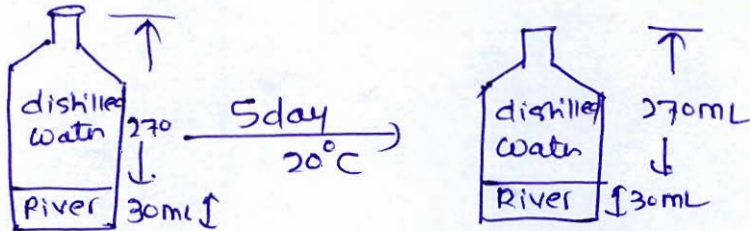 distilled
water 270
River 30ml
5day
20°C
distilled
water
270mL
River 30mL